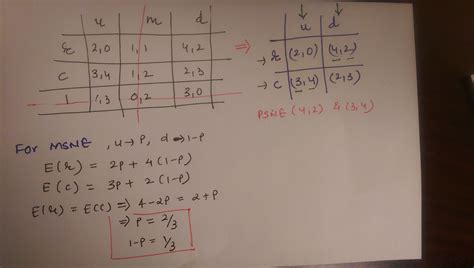 u m d
r 2,0 1,1 4,2
c 3,4 1,2 2,3
l 1,3 0,2 3,0
⇒
↓ ↓
u d
→ r (2,0) (4,2)
→ c (3,4) (2,3)
PSNE (4,2) & (3,4)
For MSNE , u → P, d → 1-P
E(r) = 2P + 4(1-P)
E(c) = 3P + 2(1-P)
E(r) = E(c) ⇒ 4-2P = 2+P
⇒ P = 2/3
1-P = 1/3